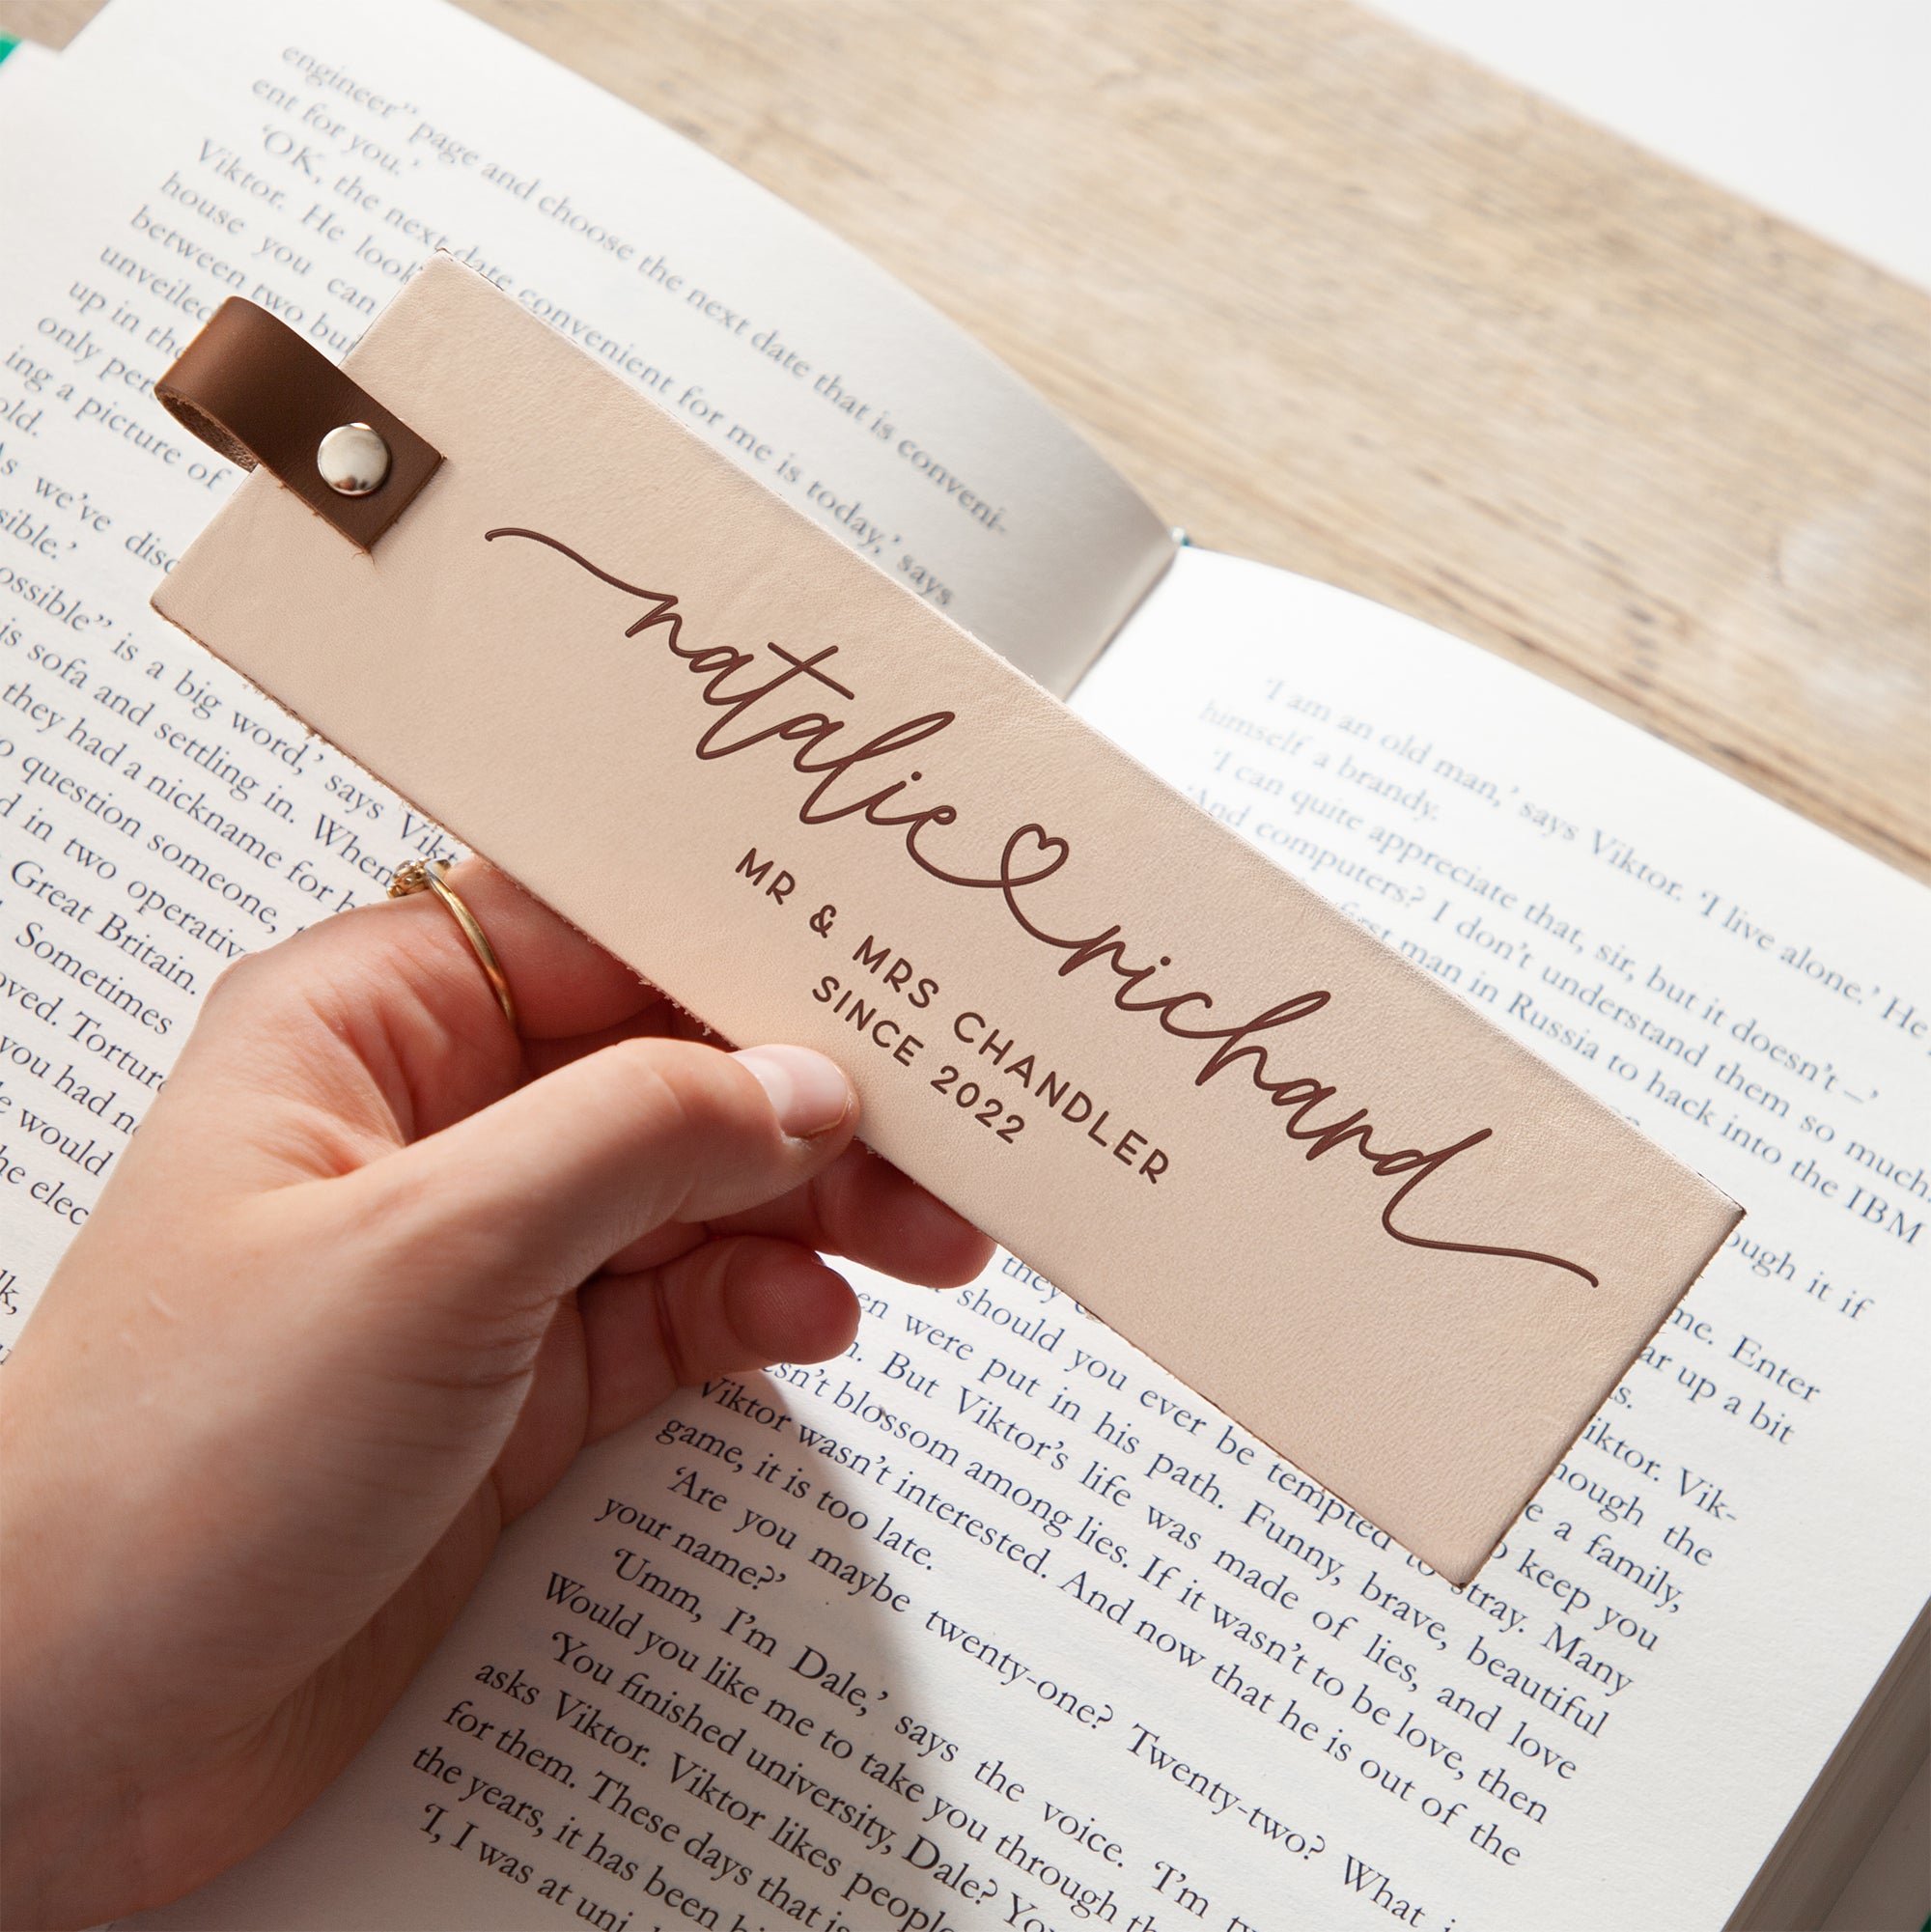 natalie richard
MR & MRS CHANDLER
SINCE 2022
engineer” page and choose the next date that is conveni-
ent for you.’
‘OK, the next date convenient for me is today,’ says
Viktor. He look
house you can
between two bu
unveiled
up in the
only pers
ing a picture of
old.
As we’ve disc
sible.’
ossible” is a big word,’ says Vikt
is sofa and settling in. When
they had a nickname for h
o question someone,
d in two operativ
Great Britain.
Sometimes
oved. Torture
you had no
e would
he elec
lk,
‘I am an old man,’ says Viktor. ‘I live alone.’ He
himself a brandy.
‘I can quite appreciate that, sir, but it doesn’t –’
‘And computers? I don’t understand them so much.
first man in Russia to hack into the IBM
ough it if
me. Enter
ar up a bit
s.
iktor. Vik-
hough the
e a family,
they
o keep you
should you ever be tempted to stray. Many
en were put in his path. Funny, brave, beautiful
n. But Viktor’s life was made of lies, and love
esn’t blossom among lies. If it wasn’t to be love, then
Viktor wasn’t interested. And now that he is out of the
game, it is too late.
‘Are you maybe twenty-one? Twenty-two? What i
your name?’
‘Umm, I’m Dale,’ says the voice. ‘I’m tw
Would you like me to take you through th
‘You finished university, Dale? You
asks Viktor. Viktor likes people
for them. These days that is
the years, it has been hi
‘I, I was at uni,